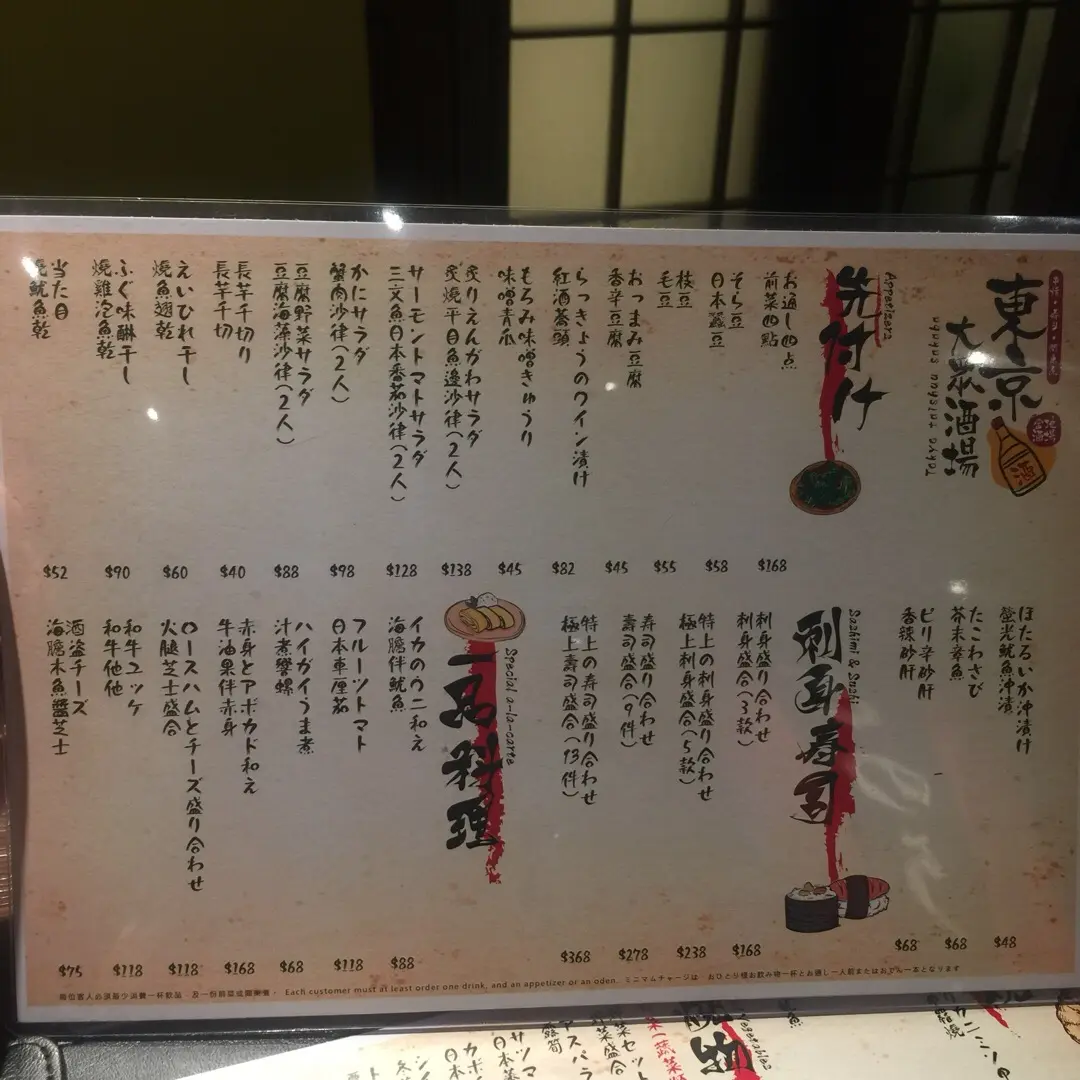 東京
大衆酒場
先付け
Appetizers
お通し四点
前菜四點
$168
そら豆
日本蠶豆
$58
枝豆
毛豆
$55
おつまみ豆腐
香辛豆腐
$45
らっきょうのワイン漬け
紅酒蕎頭
$82
もろみ味噌きゅうり
味噌青瓜
$45
炙りえんがわサラダ
炙燒平目魚邊沙律(2人)
$138
サーモントマトサラダ
三文魚日本番茄沙律(2人)
$128
かにサラダ
蟹肉沙律(2人)
$98
豆腐野菜サラダ
豆腐海藻沙律(2人)
$88
長芋千切り
長芋千切
$40
えいひれ干し
燒魚翅乾
$60
ふぐ味醂干し
燒雞泡魚乾
$90
当た目
燒魷魚乾
$52
ほたるいか沖漬け
螢光魷魚沖漬
$48
たこわさび
芥末章魚
$68
ピリ辛砂肝
香辣砂肝
$68
刺身寿司
Sashimi & Sushi
刺身盛り合わせ
刺身盛合(3款)
$168
特上の刺身盛り合わせ
極上刺身盛合(5款)
$238
寿司盛り合わせ
壽司盛合(9件)
$278
特上の寿司盛り合わせ
極上壽司盛合(13件)
$368
一品料理
Special a-la-carte
イカのウニ和え
海膽伴魷魚
$88
フルーツトマト
日本車厘茄
$118
ハイガイうま煮
汁煮響螺
$68
赤身とアボカド和え
牛油果伴赤身
$168
ロースハムとチーズ盛り合わせ
火腿芝士盛合
$118
和牛ユッケ
和牛他他
$118
酒盗チーズ
海膽木魚醬芝士
$75
Each customer must at least order one drink, and an appetizer or an oden. ミニマムチャージは おひとり様お飲み物一杯とお通し一人前またはおでん一本となります